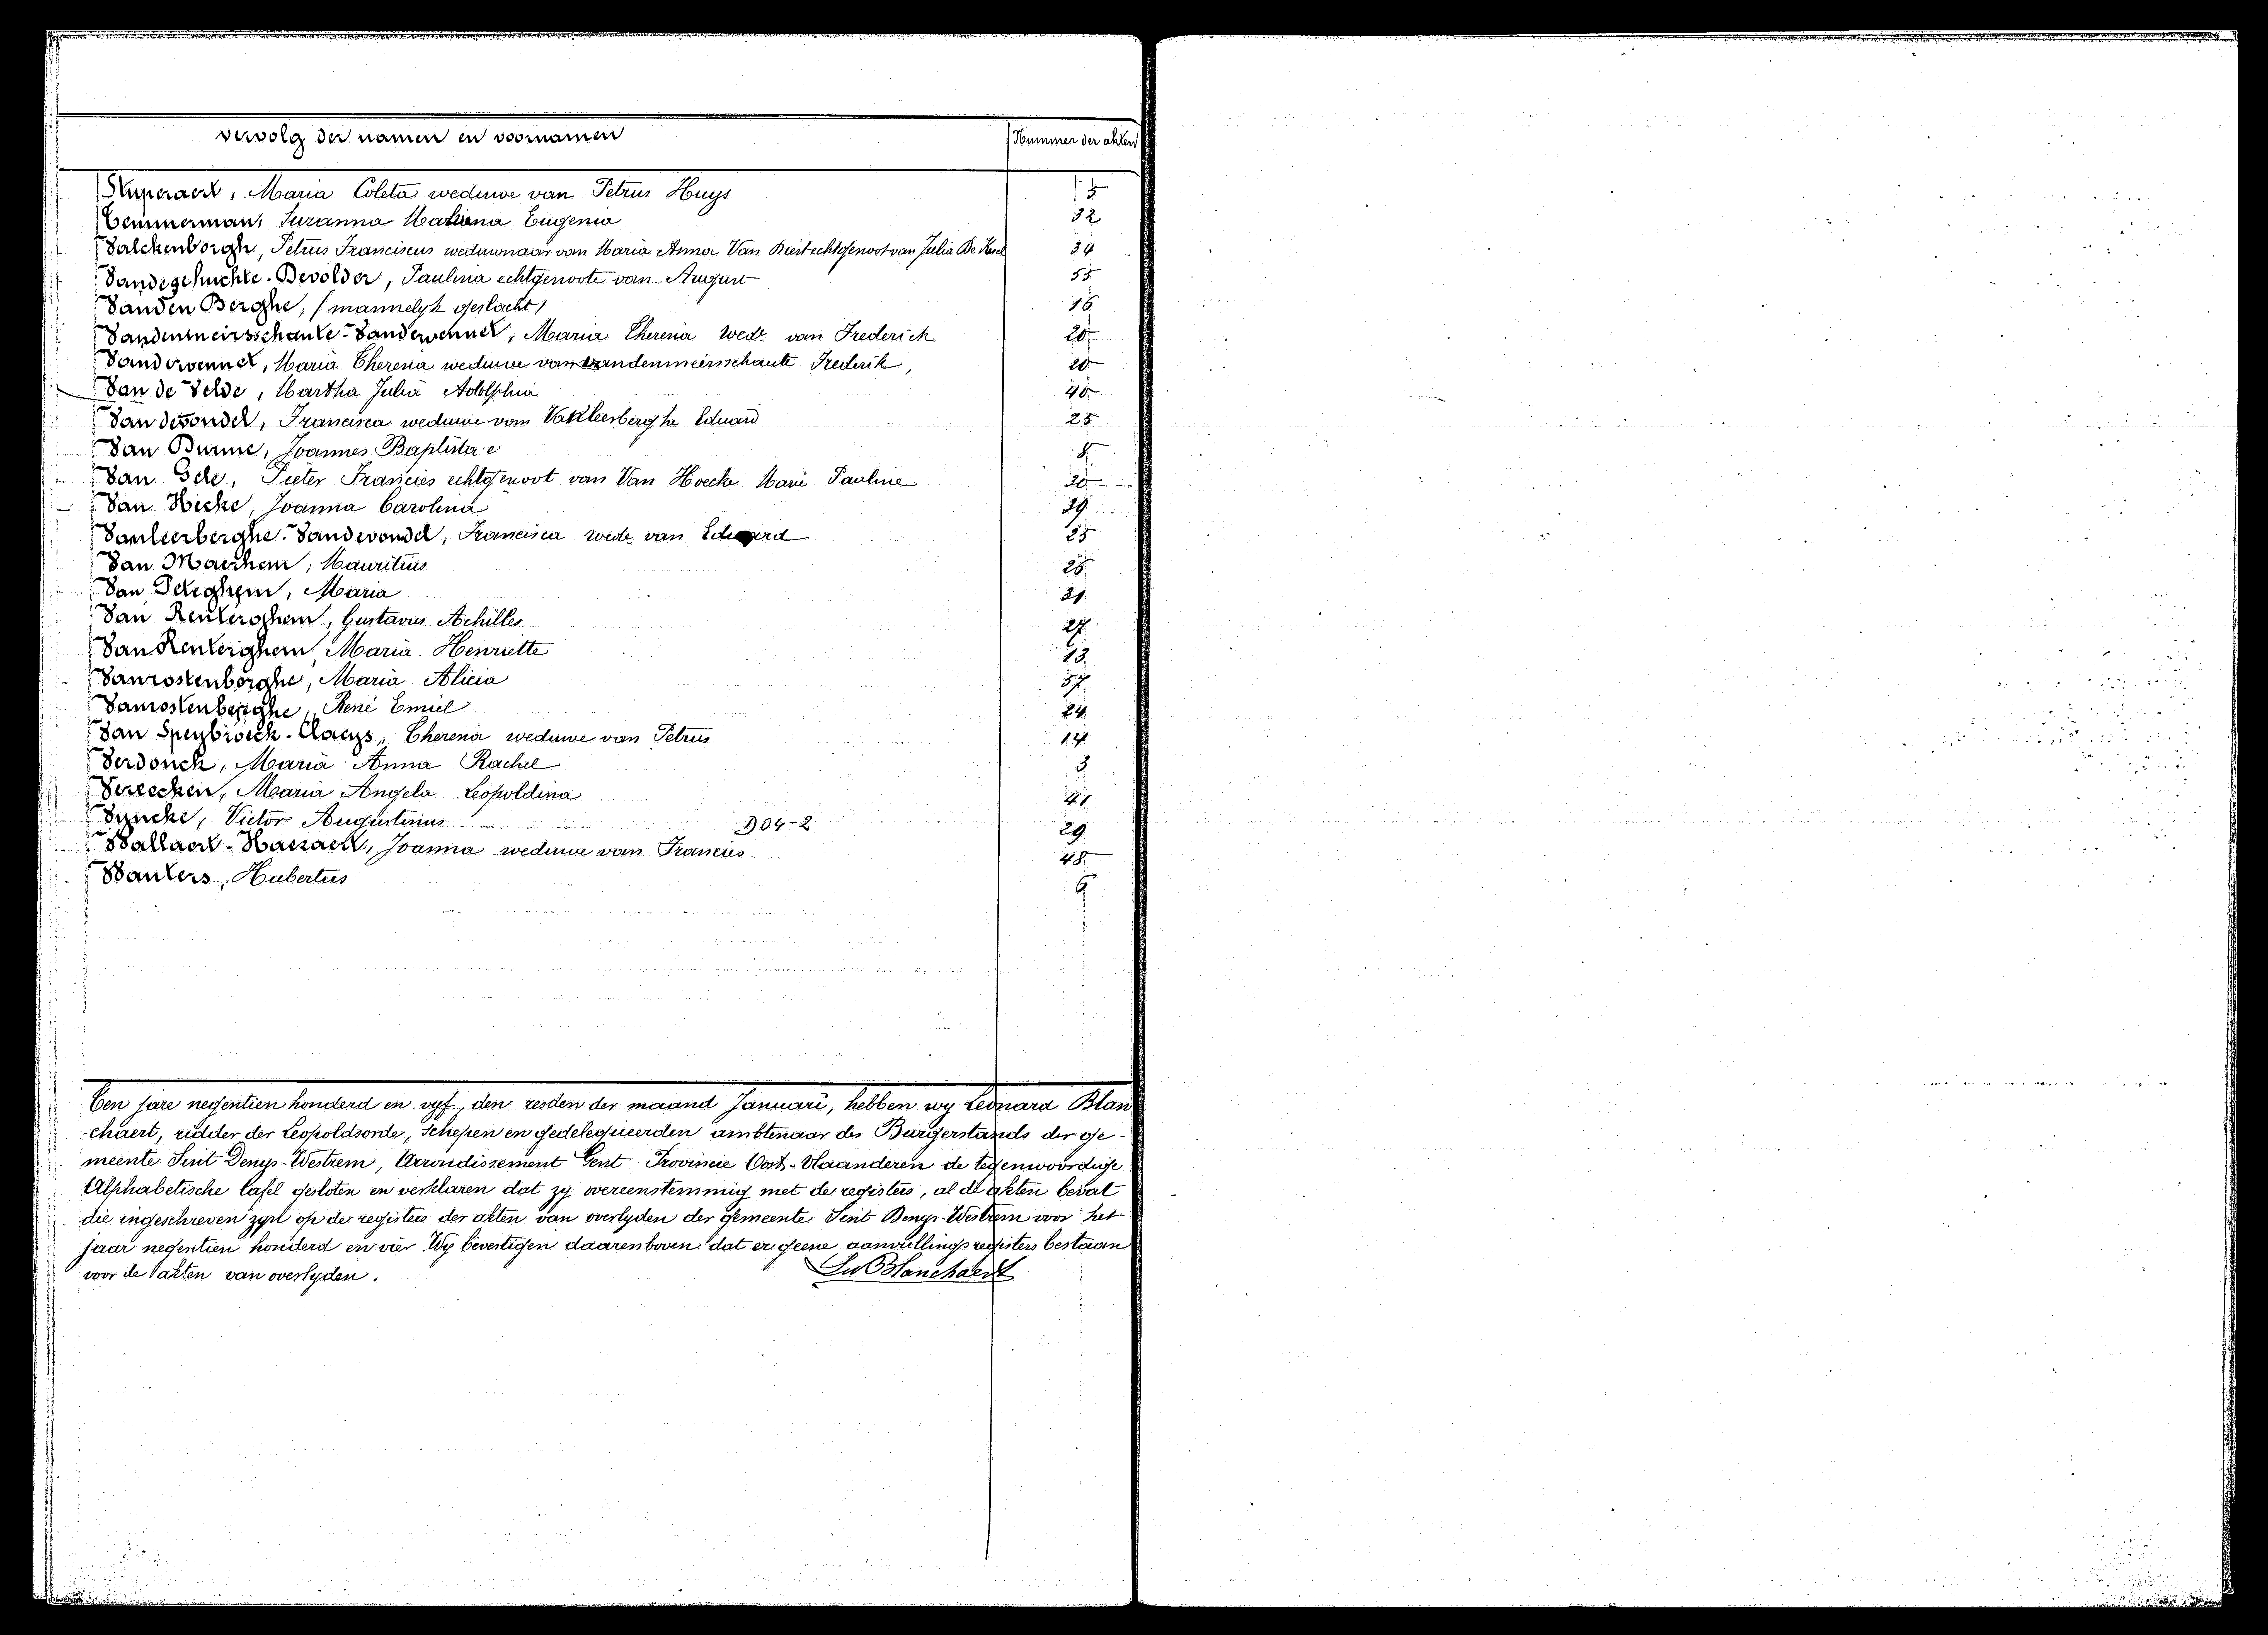 vervolg der namen en voornamen Nummer der akten
Maria Coleta weduwe van Petrus Huys
Temmerman, Suzanna Eugenia 32
Valckenborgh, Petrus Franciscus weduwnaar van Maria Anna Van echtgenoot van Julia De 34
Vandegehuchte-Devolder, Paulina echtgenoote van August 55
Vanden Berghe, (mannelyk geslacht) 16
Vandenmeirsschaute-Vanderwennet, Maria Theresia Wede van Frederich 20
Vanderwennet, Maria Theresia weduwe van Vandenmeirsschaute Frederik, 20
Van de Velde, Martha Julia Adolphia
Vandevondel, Francisca weduwe van Eduard 25
Van Joannes Baptista
Van Pieter Francies echtgenoot van Van Hoecke Marie Pauline
Van Hecke, Joanna Carolina 39
Vanleerberghe-Vandevondel, Francisca wede van Eduard 25
Van Maerhem, Mauritius
Van Peteghem, Maria 21
Van Renterghem, Gustavus Achilles 27
Van Renterghem, Maria Henriette 13
Vanrostenberghe, Maria Alicia 37
Vanrostenberghe, René Emiel 24
Van Speybroeck-Claeys, Theresia weduwe van Petrus 14
Verdonck, Maria Anna Rachel 3
Maria Angela Leopoldina 41
Vyncke, Victor Augustinus D04-2 29
Wallaert-Haezaert, Joanna weduwe van Francies 48
Wauters, Hubertus 6
Ten jare negentien honderd en vyf, den zesden der maand Januari, hebben wy Leonard Blan
chaert, ridder der Leopoldsorde, Schepen en gedelegueerden ambtenaar des Burgerstands der ge-
meente Sint Denys-Westrem, Arrondissement Gent Provincie Oost-Vlaanderen de tegenwoordige
Alphabetische tafel gesloten en verklaren dat zy overeenstemmig met de registers, al de akten bevat
die ingeschreven zyn op de registers der akten van overlyden der gemeente Sint Denys-Westrem voor het
jaar negentien honderd en vier. Wy bevestigen daarenboven dat er geene aanvullingsregisters bestaan
voor de akten van overlyden. Blanchaert